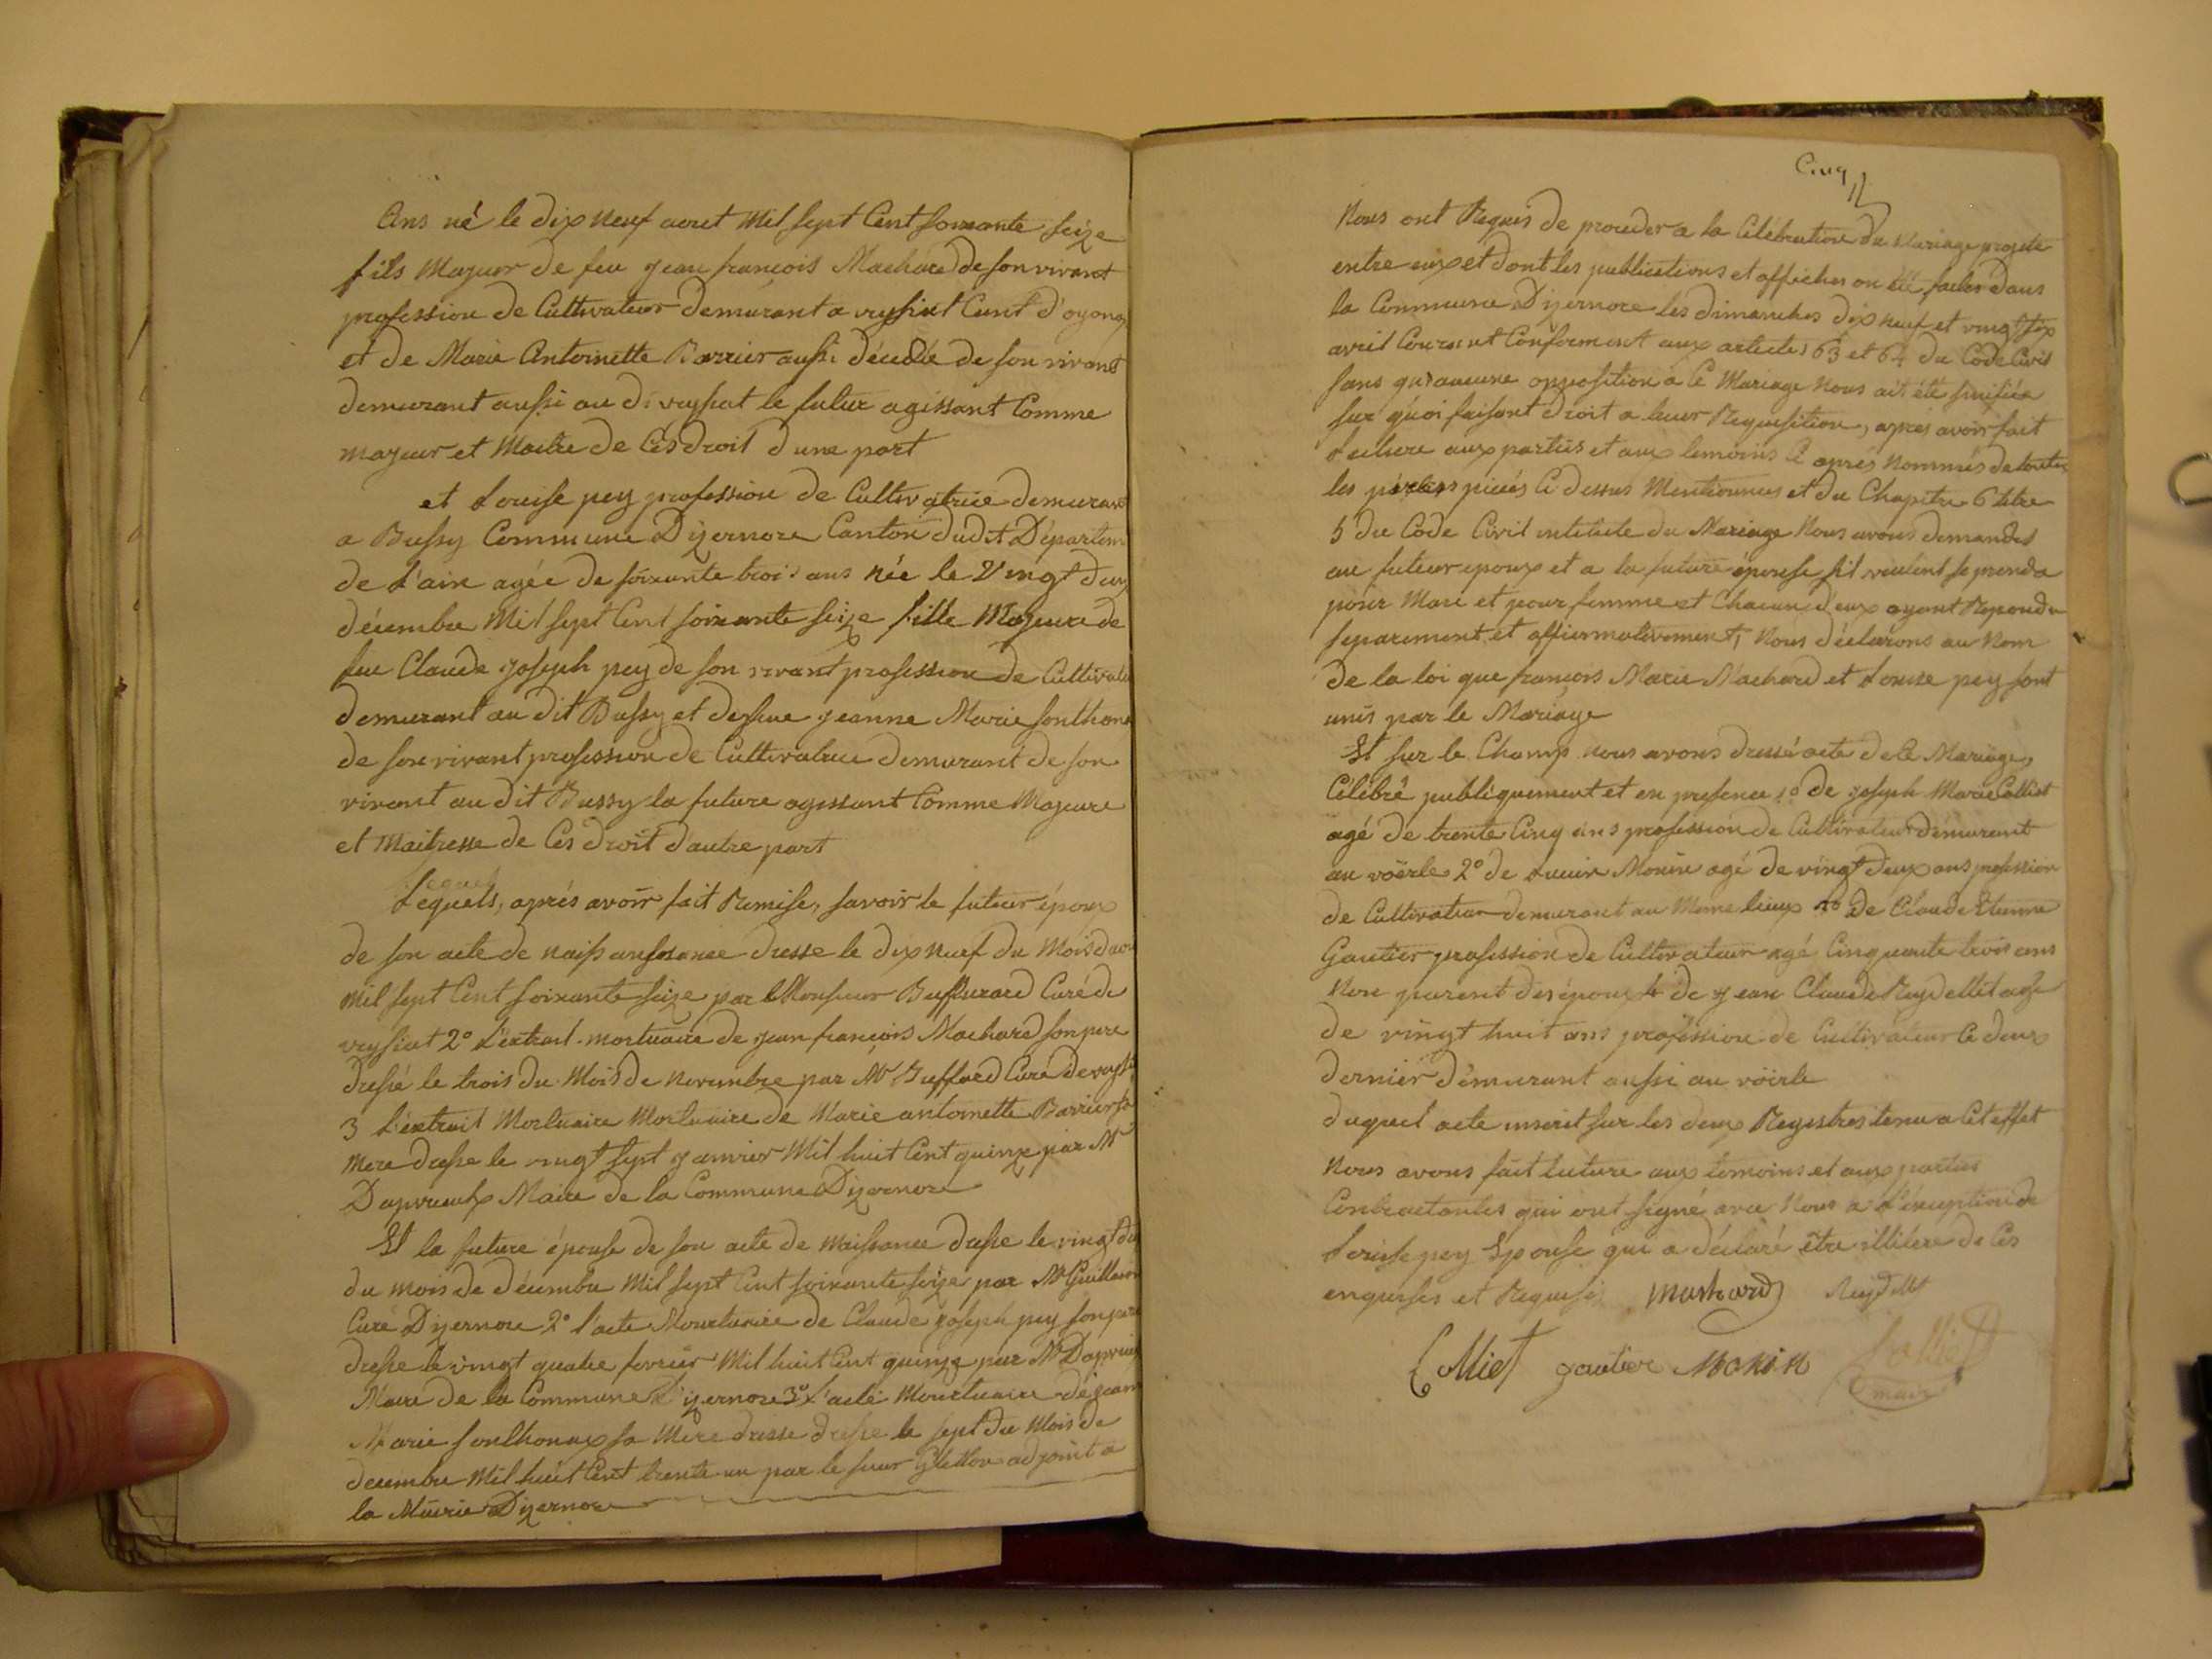 Ans né le dix neuf aout Mil sept Cent soixante seize
fils Majeur de feu jean françois Machard de son vivant
profession de Cultivateur demeurant a veyssiat Cant d'oyonax
et de Marie Antoinette Barrier aussi décédée de son vivant
demeurant aussi au di veyssiat le futur agissant Comme
majeur et Maitre de Ces droit d'une part
et Louise pey profession de Cultivatrice demeurant
a Bussy Commune Dizernore Canton dudit Départem
de L'ain agée de soixante trois ans née le Vingt deux
décembre Mil sept Cent soixante seize fille Majeure de
feu Claude joseph pey de son vivant profession de Cultivateu
demeurant au dit Bussy et deffue jeanne Marie sonthona
de son vivant profession de Cultivatrice demeurant de son
vivant au dit Bussy la future agissant Comme Majeure
et Maitresse de Ces droit d'autre part
Lequels, aprés avoir fait Remise, savoir le futeur époux
de son acte de naissance dresse le dix neuf du Mois d'aou
Mil sept Cent soixante seize par Monsieur Buffurard Curé de
veyssiat 2° L'extrait mortuaire de jean françois Machard son pere
dressé le trois du Mois de novembre par Mr Buffard Curé de veyssi
3 L'extrait Mortuaire Mortuaire de Marie antoinette Barrier sa
Mere dresse le vingt sept janvier Mil huit Cent quinze par Mr
Dapvrieulx Maire de la Commune Dizernore
Et la future épouse de son acte de Naissance dresse le vingt deux
du mois de décembre Mil sept Cent soixante seize par Mr Guillermin
Curé Dizernore 2° l'acte Mourtuaire de Claude joseph pey son pere
dresse le vingt quatre fevrier Mil huit Cent quinze par Mr Dapvrieu
Maire de la Commune d'izernore 3° L'acte Mourtuaire de jeann
Marie sonthonax sa Mere dresse dresse le sept du Mois de
decembre Mil huit Cent trente un par le sieur Gletton adjoint a
la Mairie Dizernore
Cinq
Nous ont Requis de proceder a la Célébration du Mariage projeté
entre eux et dont les publications et affiches on été faites dans
la Commune Dizernore les dimanches dix neuf et vingt six
avril Courant Conforment aux articles 63 et 64 du Code Civil
sans qu'aucune opposition a Ce Mariage Nous ait été sinifiée
sur quoi faisant droit a leur Requisition, apres avoir fait
Lecture aux parties et aux temoins Ci aprés Nommés de toutes
les pieces Ci dessus Mentionnees et du Chapitre 6 titre
5 du Code Civil intitulé du Mariage Nous avons demandé
au futeur epoux et a la future épouse sil veulent se prendre
pour Mari et pour femme et Chacun d'eux ayant Repondu
separement et affiermativement, Nous déclarons au Nom
de la loi que françois Marie Machard et Louise pey sont
unis par le Mariage
Et sur le Champ nous avons dressé acte de Ce Mariage,
Célébré publiquement et en presence 1° de joseph Marie Colliet
agé de trente Cinq ans profession de Cultivateur demeurant
au voërle 2° de Lucien Monin agé de vingt deux ans profession
de Cultivateur demeurant au Meme lieux 3° de Claude Etienne
Gautier profession de Cultivateur agé Cinquante trois ans
Non parent des époux 4° de jean Claude Reydellet agé
de vingt huit ans profession de Cultivateur Ce deux
dernier demeurant aussi au voërle
duquel acte inscrit sur les deux Registres tenu a Cet effet
Nous avons fait lecture aux temoins et aux parties
Contractantes qui ont signé avec Nous a L'éxception de
Louise pey Epouse qui a déclaré être illitere de Ces
enquises et Requise Machard Reydellet
Colliet gautier MoNiN
maire